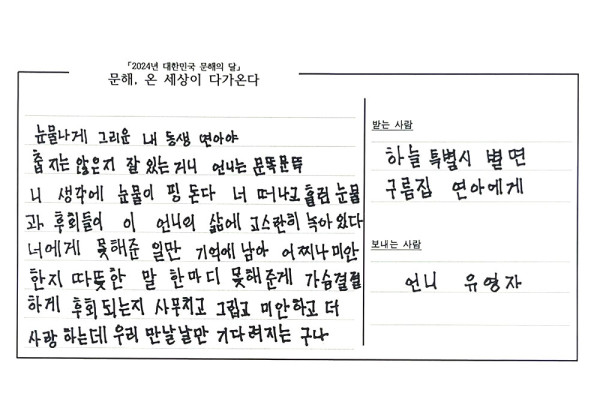 「2024년 대한민국 문해의 달」
문해, 온 세상이 다가온다
눈물나게 그리운 내 동생 연아야
춥지는 않은지 잘 있는거니 언니는 문뜩문뜩
니 생각에 눈물이 핑 돈다 너 떠나고 흘린 눈물
과 후회들이 이 언니의 삶에 고스란히 녹아있다
너에게 못해준 일만 기억에 남아 어찌나 미안
한지 따뜻한 말 한마디 못해준게 가슴절절
하게 후회 되는지 사무치고 그립고 미안하고 더
사랑하는데 우리 만날날만 기다려지는 구나
받는 사람
하늘 특별시 별면
구름집 연아에게
보내는 사람
언니 유영자